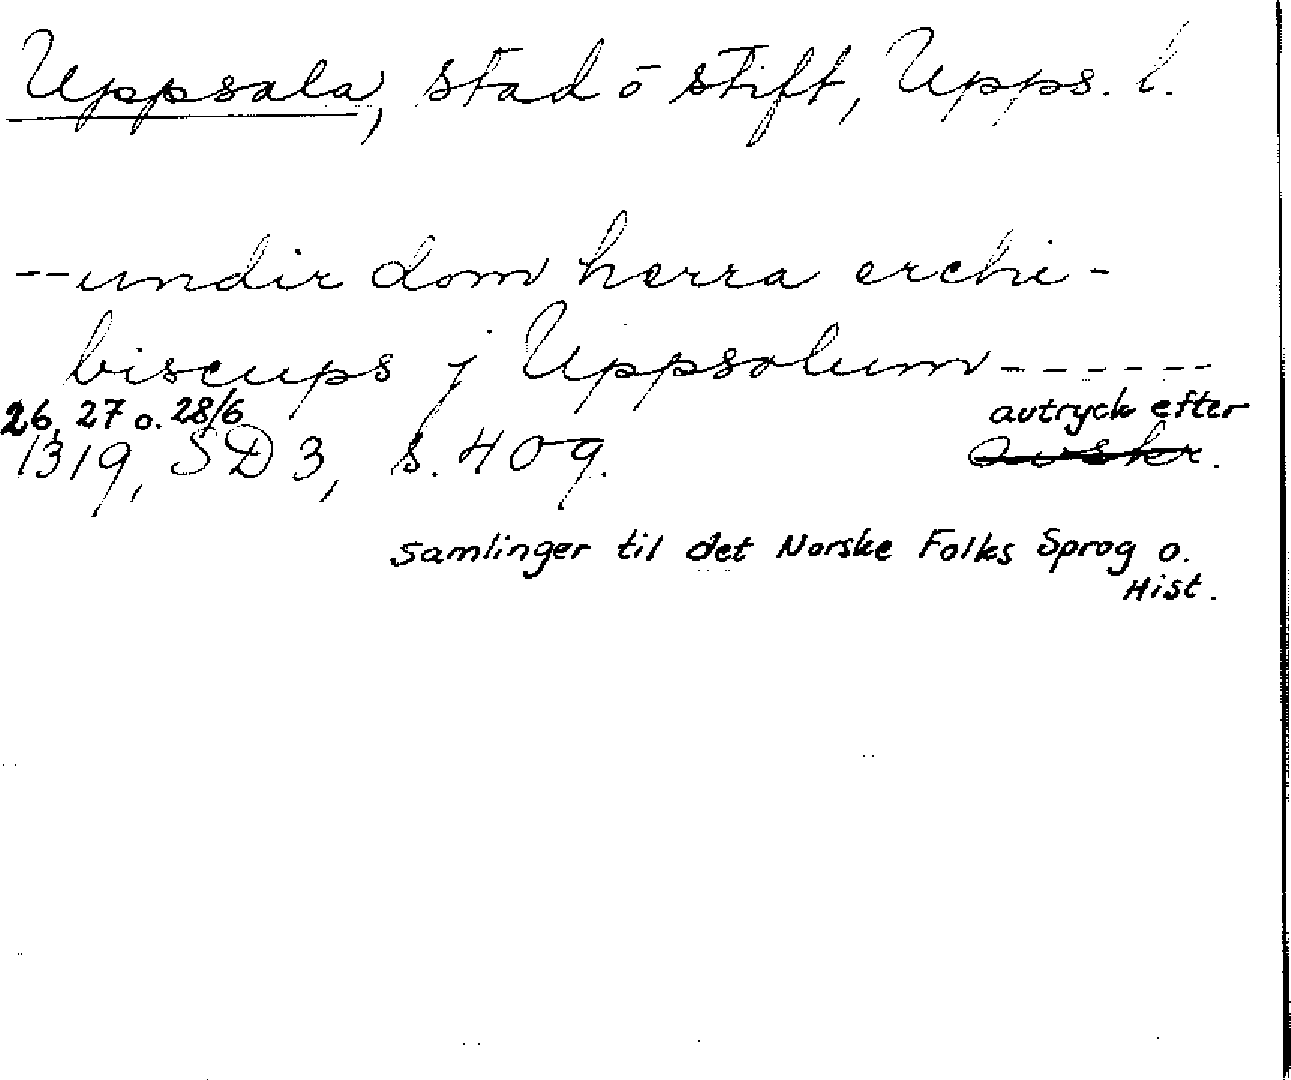 Uppsala, stad o stift, Upps. l.
--undir dom herra erchi-
biscups j Uppsolum------
26, 27 o. 28/6 avtryck efter
1319, SD 3, s. 409. avskr.
samlinger til det Norske Folks Sprog o.
Hist.